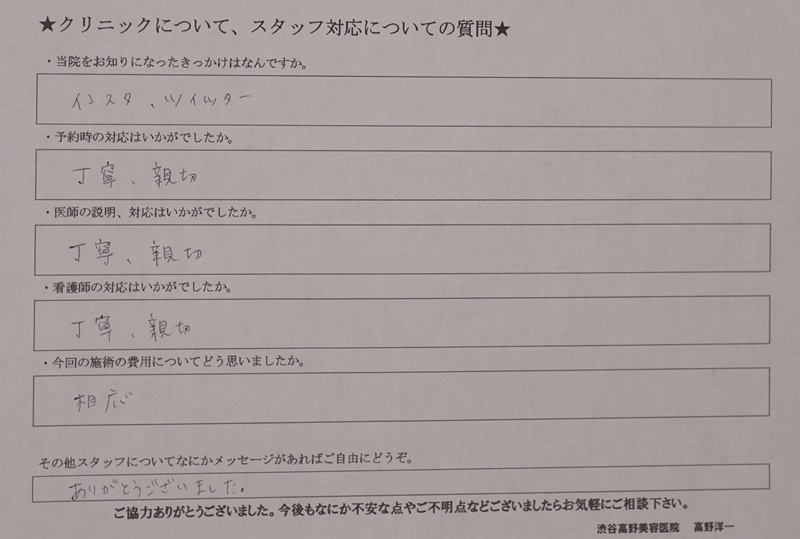 ★クリニックについて、スタッフ対応についての質問★
・当院をお知りになったきっかけはなんですか。
インスタ、ツイッター
・予約時の対応はいかがでしたか。
丁寧、親切
・医師の説明、対応はいかがでしたか。
丁寧、親切
・看護師の対応はいかがでしたか。
丁寧、親切
・今回の施術の費用についてどう思いましたか。
相応
その他スタッフについてなにかメッセージがあればご自由にどうぞ。
ありがとうございました。
ご協力ありがとうございました。今後もなにか不安な点やご不明点などございましたらお気軽にご相談下さい。
渋谷高野美容医院 高野洋一